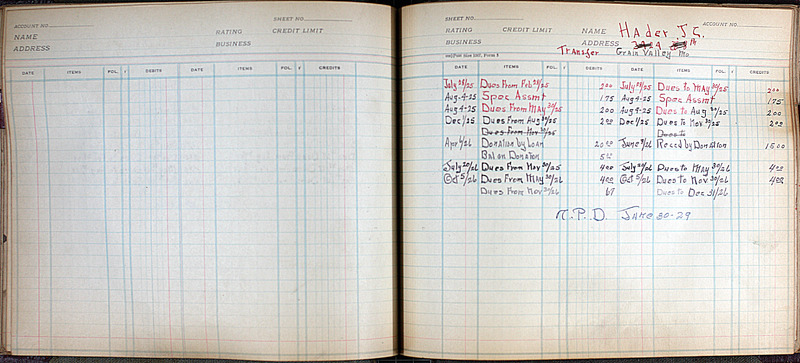 ACCOUNT NO.
SHEET NO.
NAME
RATING CREDIT LIMIT
ADDRESS
BUSINESS
DATE ITEMS FOL. √ DEBITS DATE ITEMS FOL. √ CREDITS
SHEET NO.
ACCOUNT NO.
RATING CREDIT LIMIT NAME Hader J.C.
BUSINESS ADDRESS
Transfer Grain Valley Mo
DATE ITEMS FOL. √ DEBITS DATE ITEMS FOL. √ CREDITS
July 28/25 Dues From Feb 28/25 200 July 28/25 Dues to MAY 30/25 200
Aug-4-25 Spec Assmt 175 Aug-4-25 Spec Assmt 175
Aug-4-25 Dues From MAY 30/25 200 Aug-4-25 Dues to Aug 30/25 200
Dec 1/25 Dues From Aug 30/25 200 Dec 1/25 Dues to Nov 30/25 200
Dues From Nov 30/25 Dues to
Apr 6/26 Donation by Loan 2000 June 9/26 Reced by Donation 1500
Bal on Donation 500
July 20/26 Dues From Nov 30/25 400 July 20/26 Dues to May 30/26 400
Oct 5/26 Dues From MAY 30/26 400 Oct 5/26 Dues To Nov 30/26 400
Dues From Nov 30/26 67 Dues to Dec 31/26
N.P.D. June 30-29